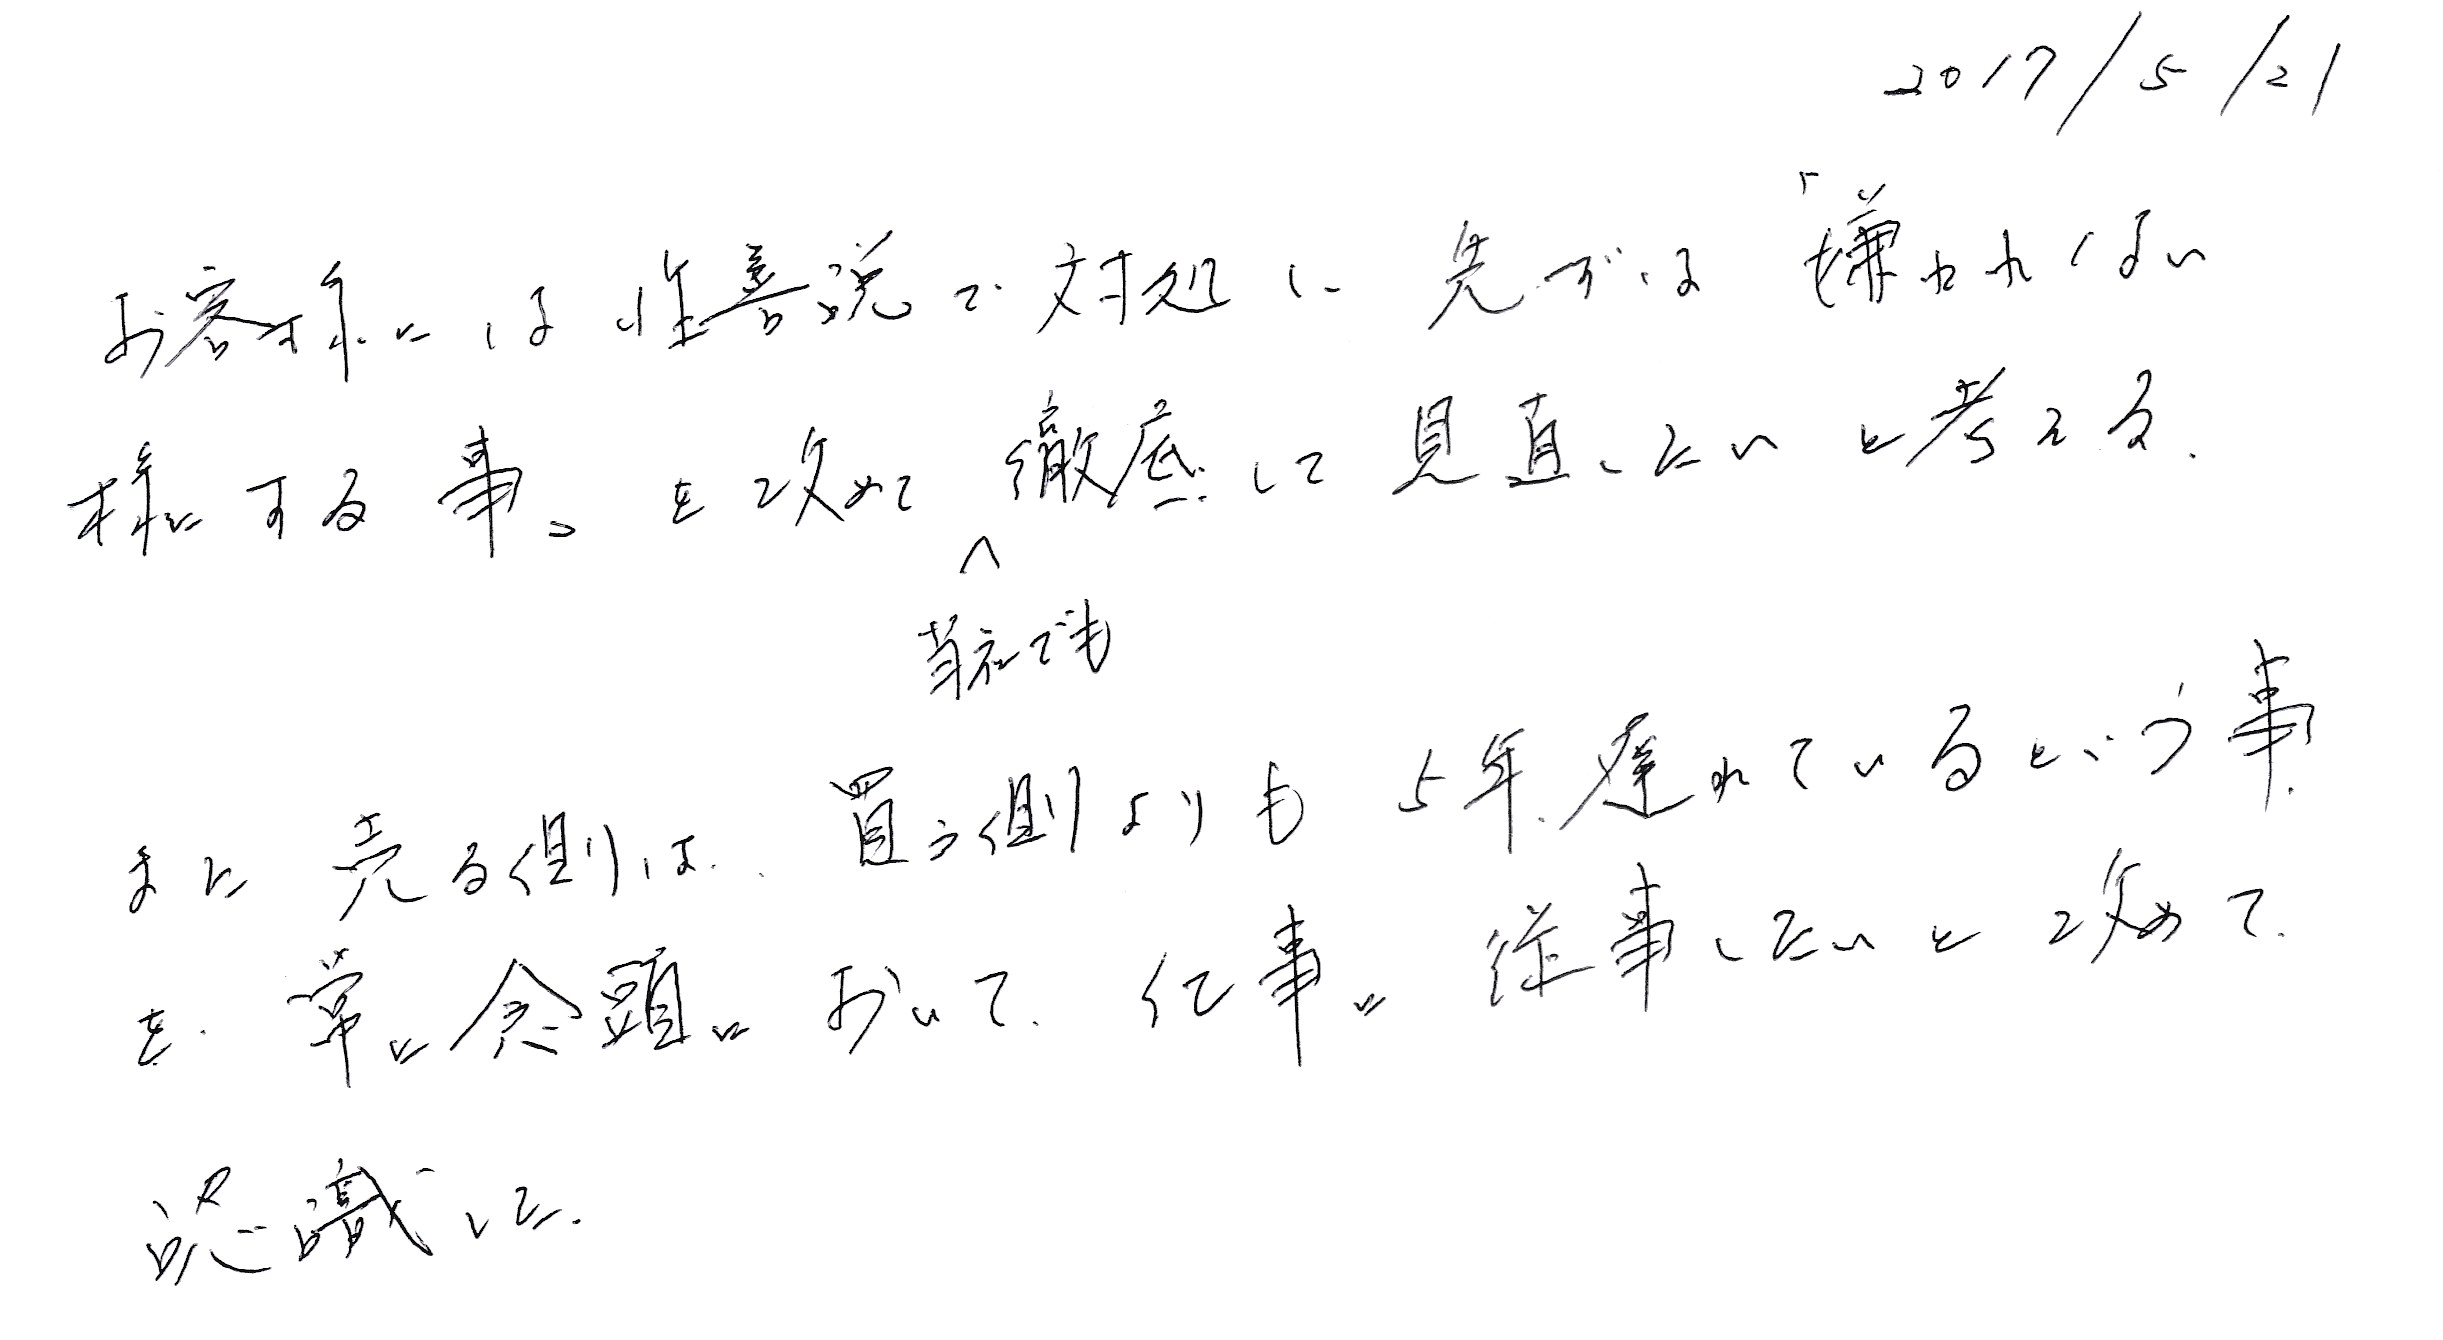 2017/5/21
お客様には性善説で対処し 先ずは「嫌われない
様にする事」を改めて徹底して見直したいと考える.
^
当社でも
また売る側は、買う側よりも5年、遅れているという事
を、常に念頭において、仕事に従事したいと改めて、
認識した.